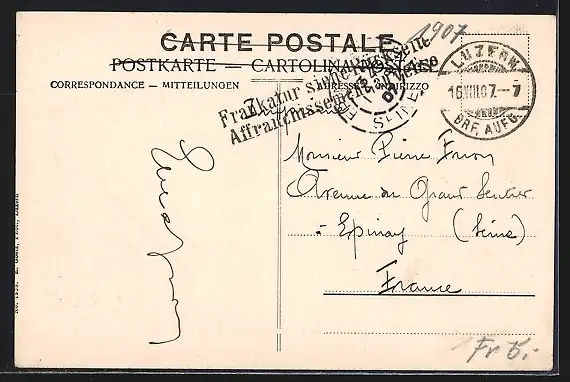 1907
CARTE POSTALE
POSTKARTE — CARTOLINA POSTALE
CORRESPONDANCE — MITTEILUNGEN
Frankatur siehe Rückseite
Affranchissement au verso
LUZERN
16.VIII.07.–7
BRF. AUFG.
SEINE
Monsieur Pierre
Avenue du Grand Sentier
Epinay (Seine)
France
Fr 5.-